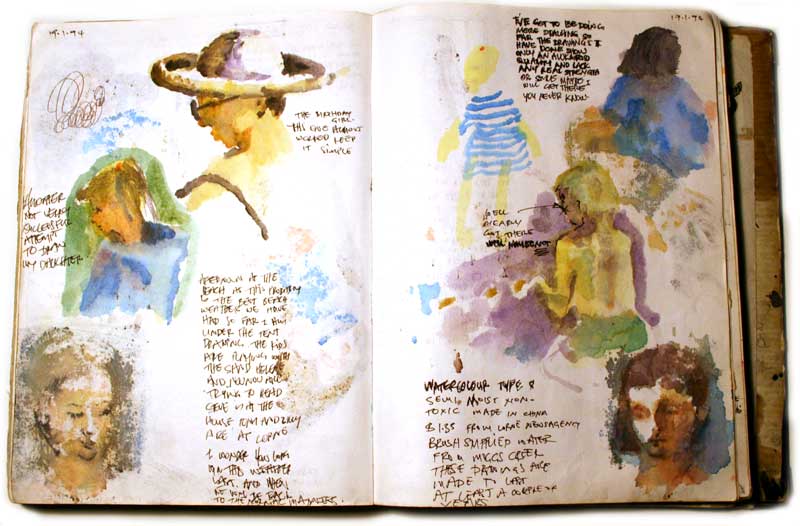 19.1.94
THE BIRTHDAY
GIRL.
THIS ONE ALMOST
WORKED KEEP
IT SIMPLE
ANOTHER
NOT VERY
SUCCESSFUL
ATTEMPT
TO DRAW
MY DAUGHTER
AFTERNOON AT THE
BEACH AS THIS
IS THE BEST BEACH
WEATHER WE HAVE
HAD SO FAR I AM
UNDER THE TENT
DRAWING THE KIDS
ARE PLAYING WITH
THE SAND HELENE
AND
TRYING TO READ
STEVE IS AT THE
HOUSE TOM AND LUCY
ARE AT LORNE
I WONDER HOW LONG
WILL THIS WEATHER
LAST AND WHEN
BACK
TO THE NORMAL
19.1.94
I'VE GOT TO BE DOING
MORE DRAWING SO
FAR THE DRAWINGS I
HAVE DONE SHOW
ONLY AN AWKWARD
QUALITY AND LACK
ANY REAL STRENGTH
OR STYLE MAYBE I
WILL GET THERE
YOU NEVER KNOW
WELL
NEARLY
GOT THERE
WELL MAYBE NOT
WATERCOLOUR TYPE 8
SEMI MOIST NON-
TOXIC MADE IN CHINA
$1.55 FROM LORNE NEWSAGENCY
BRUSH SUPPLIED WATER
FROM CREEK
THESE DRAWINGS ARE
MADE TO LAST
AT LEAST A COUPLE OF
YEARS